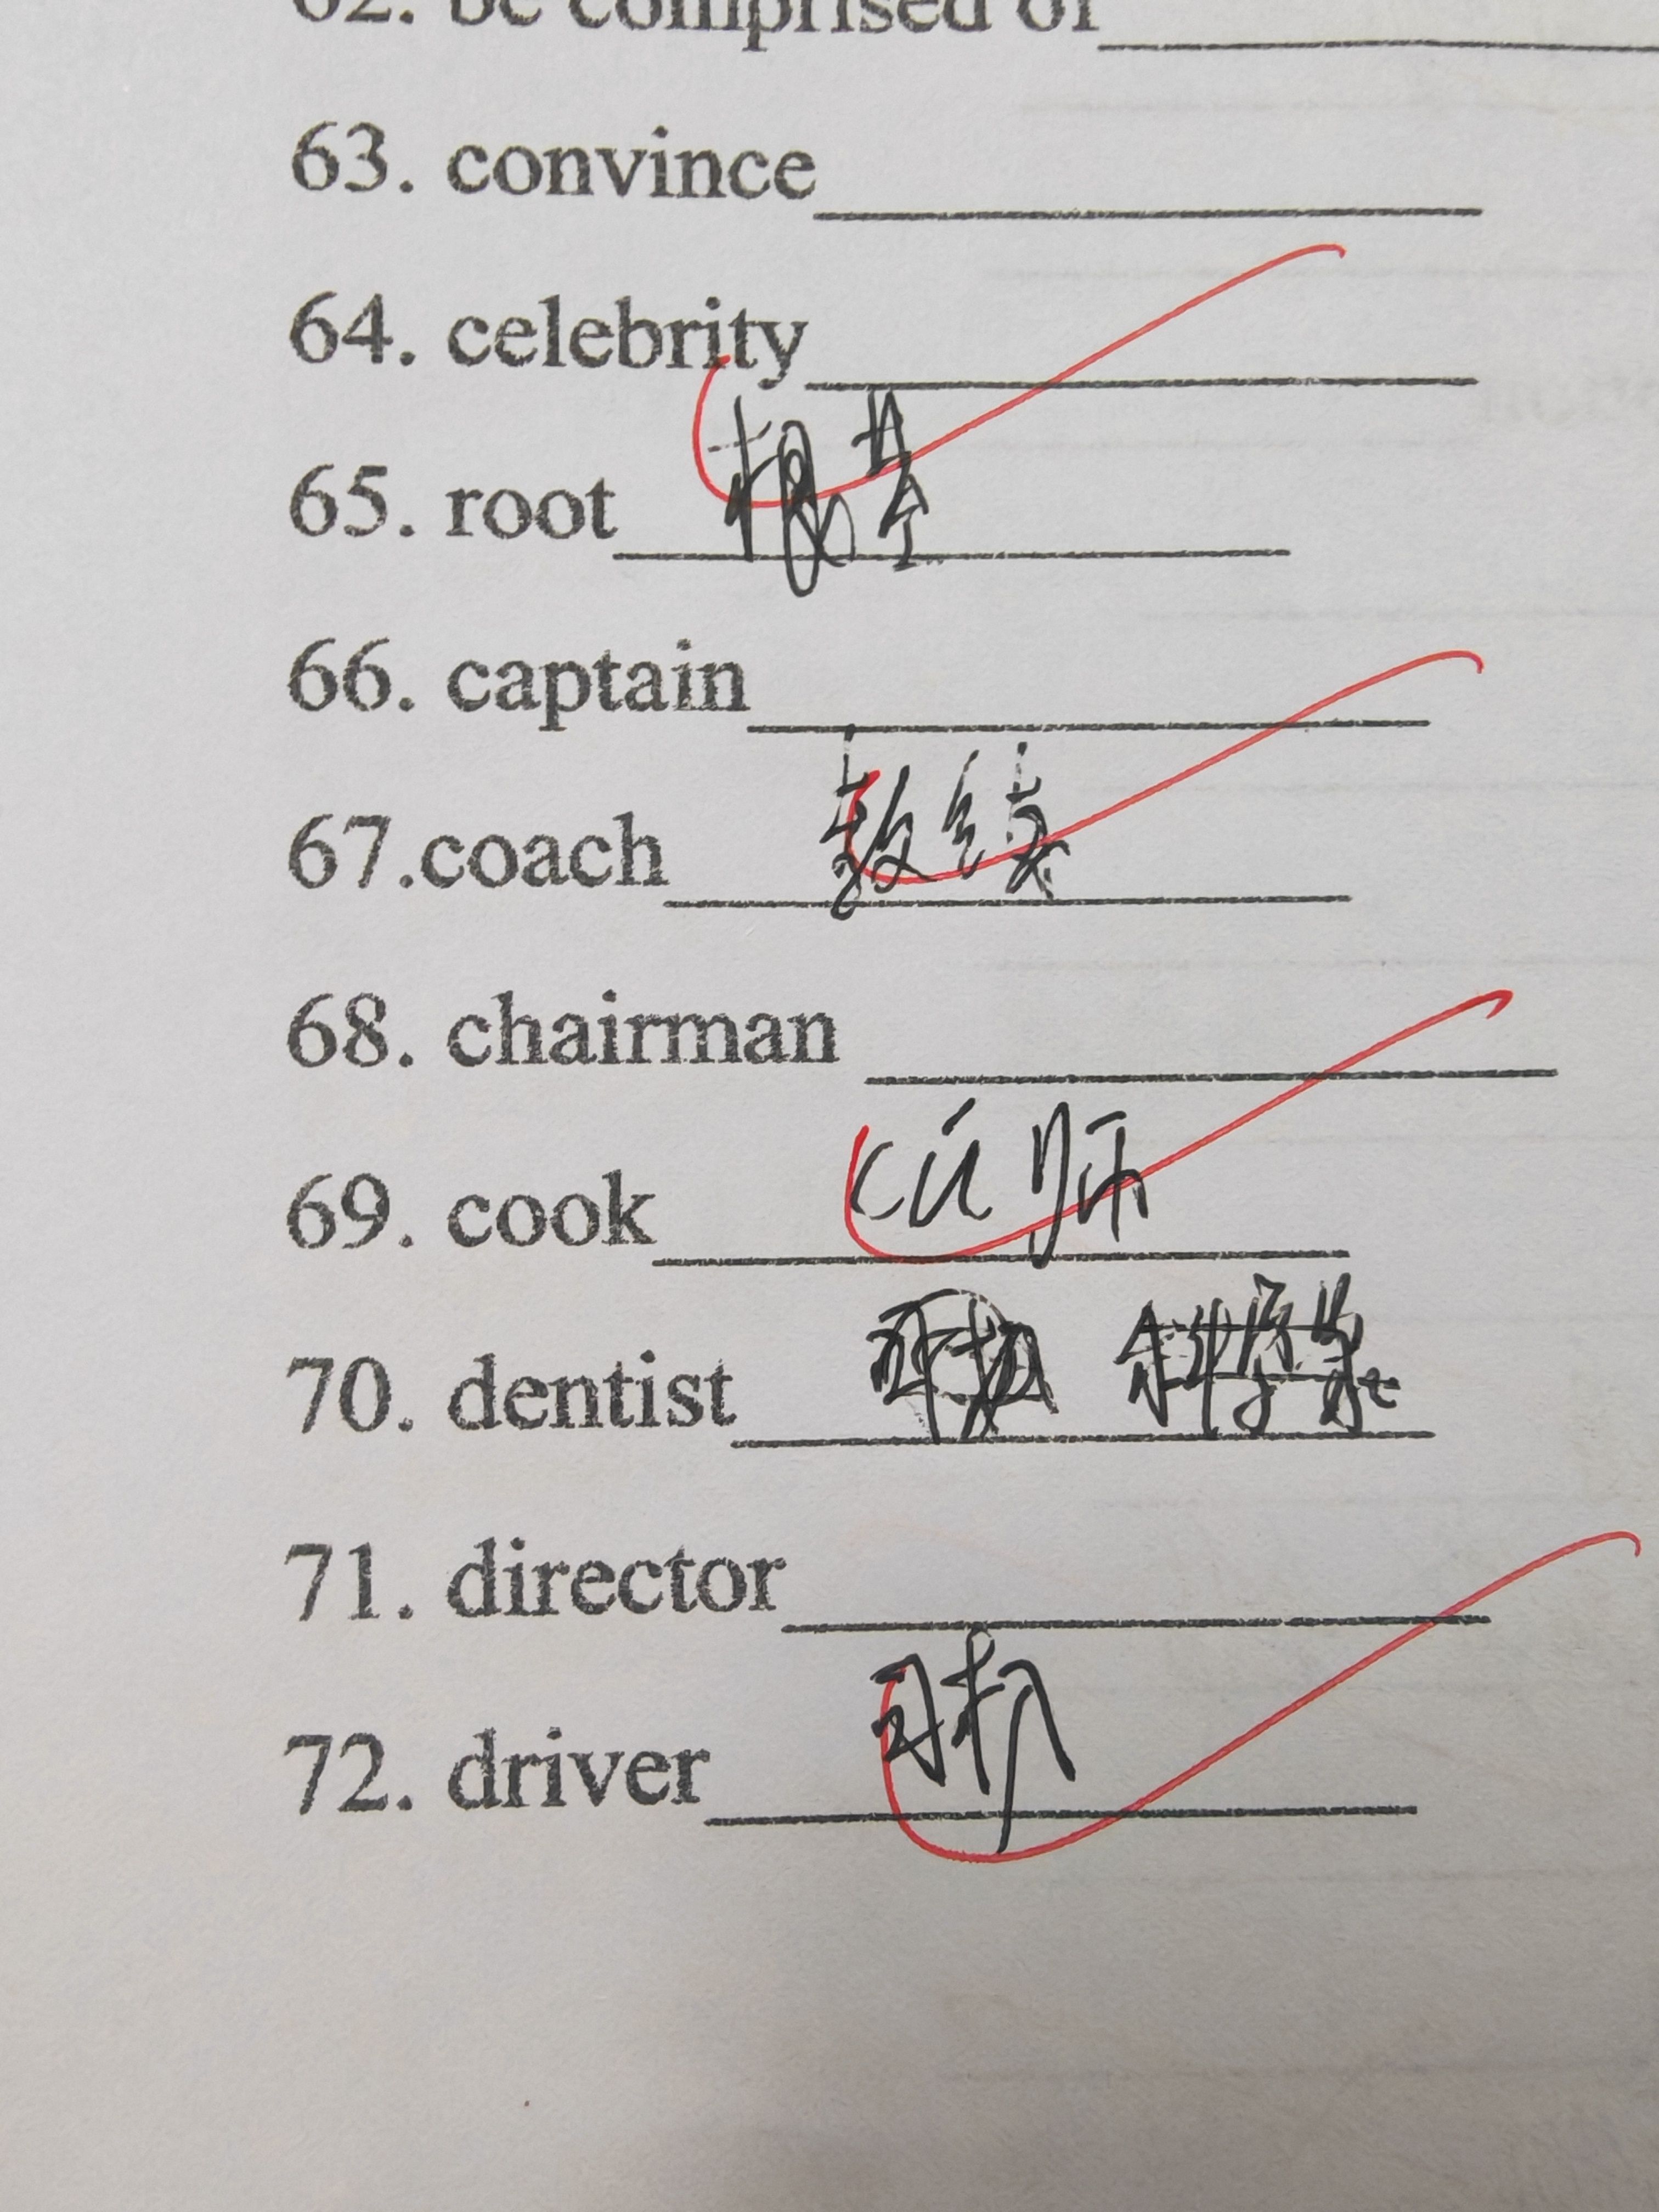 62. be comprised of
63. convince
64. celebrity
65. root 根茎
66. captain
67.coach 教练
68. chairman
69. cook cú师
70. dentist
71. director
72. driver 司机